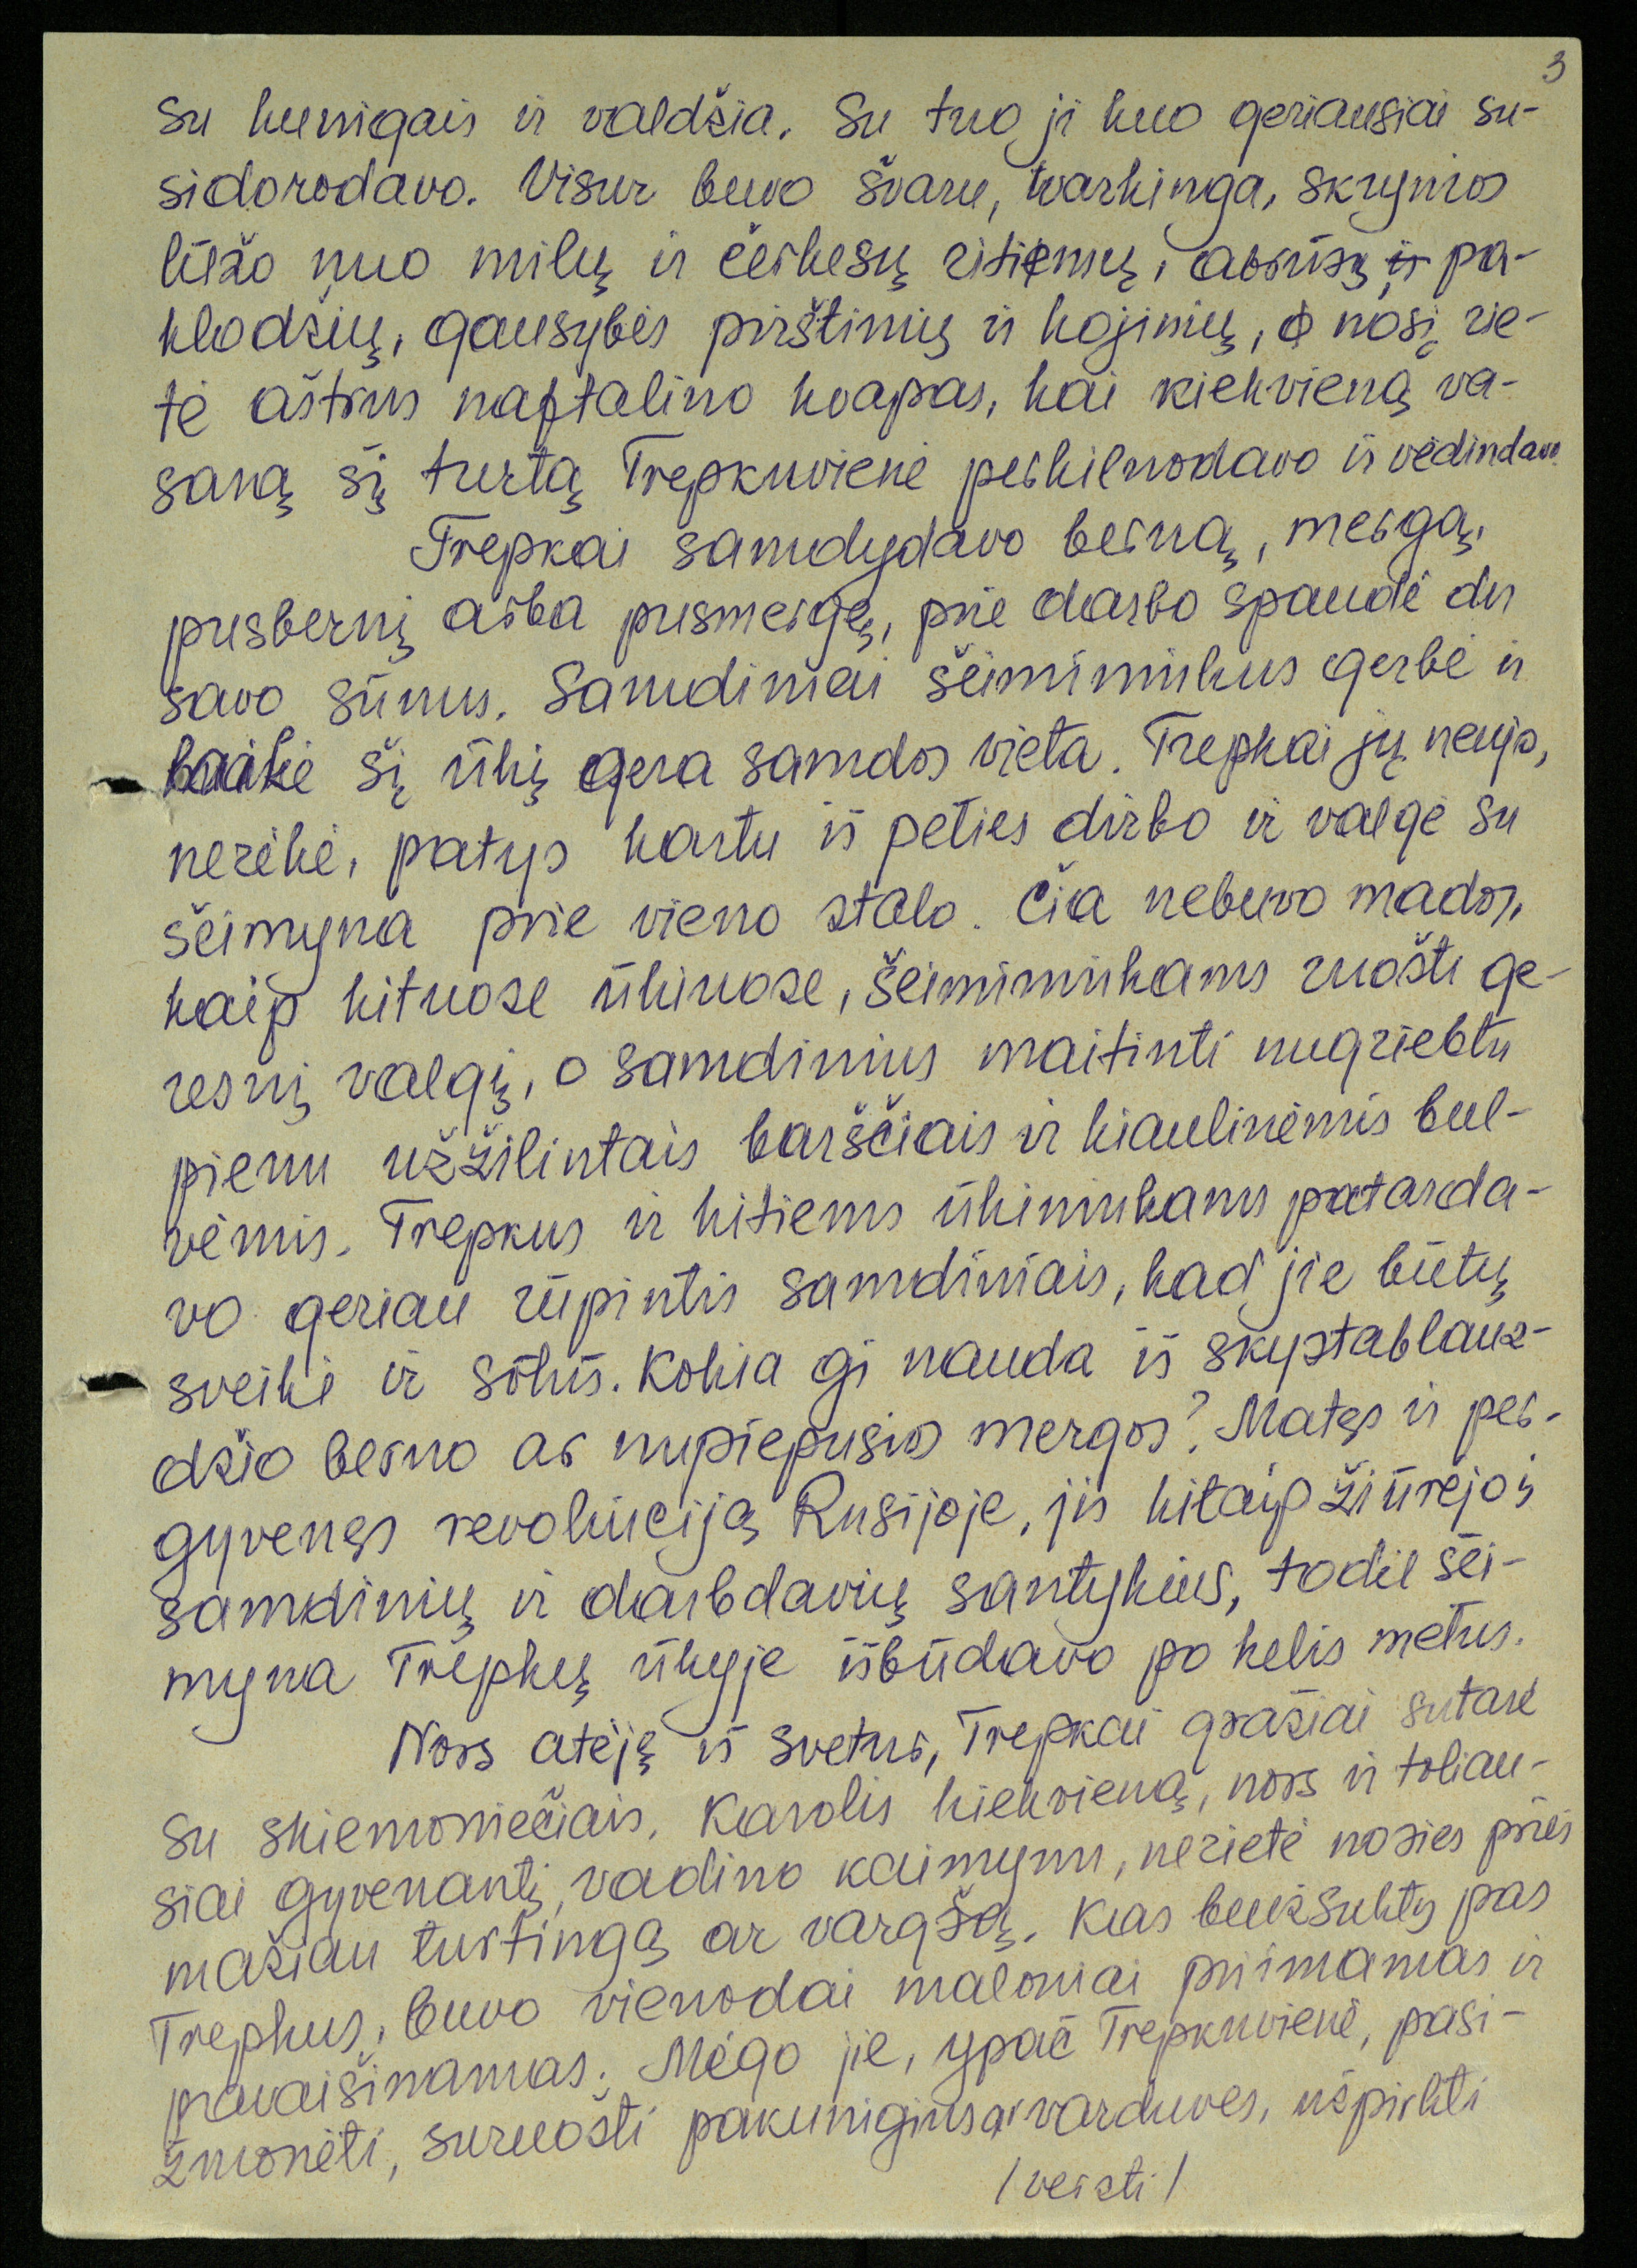 3
su kunigais ir valdžia. Su tuo ji kuo geriausiai su-
sidorodavo. Visur buvo švaru, tvarkinga, skrynios
lūžo nuo milų ir čerkesų ritinių, abrūsų, pa-
klodžių, gausybės pirštinių ir kojinių, o nosį rie-
tė aštrus naftalino kvapas, kai kiekvieną va-
sarą šį turtą Trepkuvienė perkilnodavo ir vėdindavo.
Trepkai samdydavo berną, mergą,
pusbernį arba pusmergę, prie darbo spaudė du
savo sūnus. Samdiniai šeimininkus gerbė ir
laikė šį ūkį gera samdos vieta. Trepkai jų neujo,
nerėkė, patys kartu iš peties dirbo ir valgė su
šeimyna prie vieno stalo. Čia nebuvo mados,
kaip kituose ūkiuose, šeimininkams ruošti ge-
resnį valgį, o samdinius maitinti nugriebtu
pienu užžilintais barščiais ir kiaulinėmis bul-
vėmis. Trepkus ir kitiems ūkininkams patarda-
vo geriau rūpintis samdiniais, kad jie būtų
sveiki ir sotūs. Kokia gi nauda iš skystablauz-
džio berno ar nupiepusios mergos? Matęs ir per-
gyvenęs revoliuciją Rusijoje, jis kitaip žiūrėjo į
samdinių ir darbdavių santykius, todėl šei-
myna Trepkų ūkyje išbūdavo po kelis metus.
Nors atėję iš svetur, Trepkai gražiai sutarė
su skiemoniečiais. Karolis kiekvieną, nors ir toliau-
siai gyvenantį, vadino kaimynu, nerietė nosies prieš
mažiau turtingą ar vargšą. Kas beužsuktų pas
Trepkus, buvo vienodai maloniai priimamas ir
pavaišinamas. Mėgo jie, ypač Trepkuvienė, pasi-
žmonėti, suruošti pakunigius ar varduves, užpirkti
/versti/